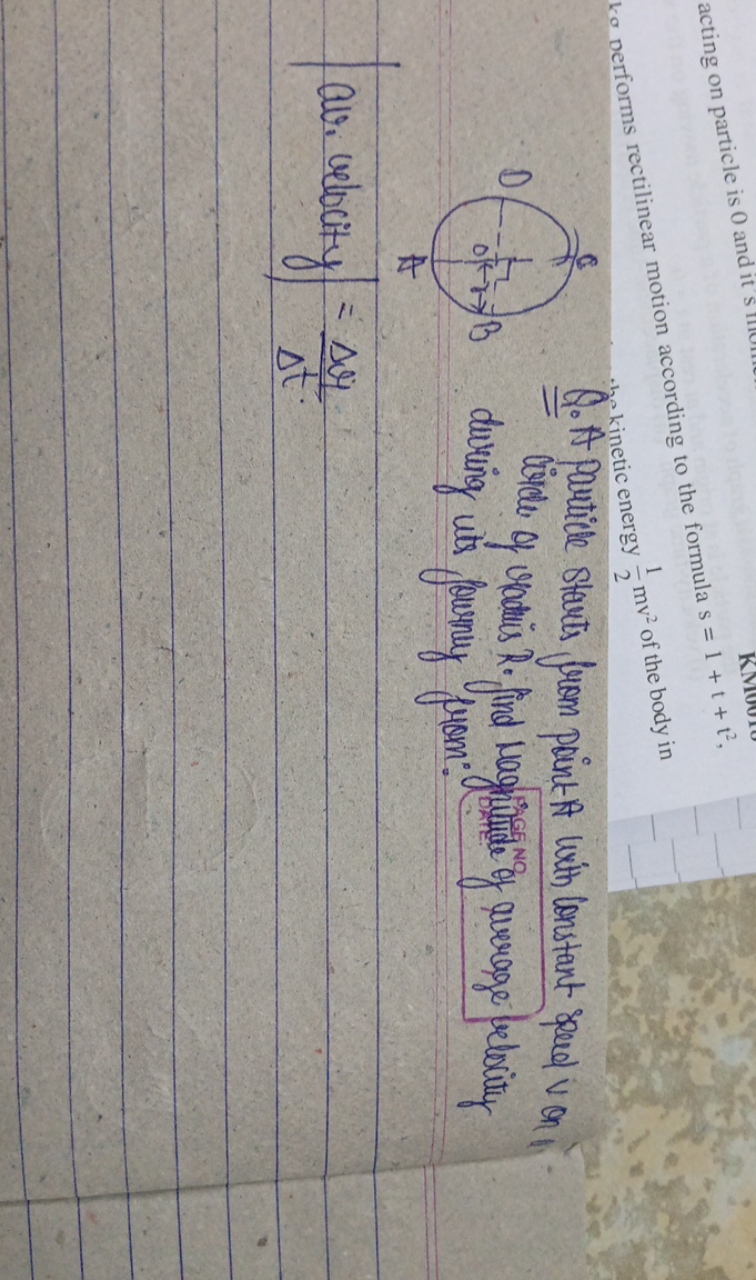 KM0010
acting on particle is 0 and it's
kg performs rectilinear motion according to the formula s = 1 + t + t²,
the kinetic energy 1/2 mv² of the body in
Q. A particle starts from point A with constant speed v on
circle of radius R. find Magnitude of average velocity
during its journey from:
PAGE NO.
DATE
C
D
O
r
B
A
|av. velocity| = Δr/Δt.